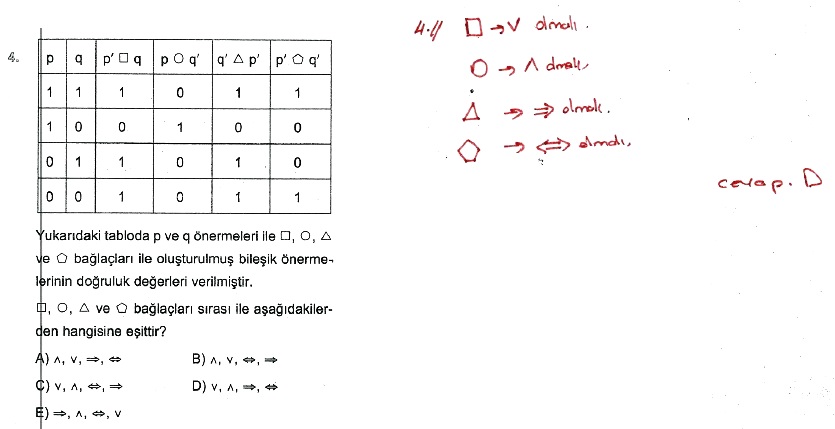 4.
p q p' □ q p ○ q' q' △ p' p' ⬠ q'
1 1 1 0 1 1
1 0 0 1 0 0
0 1 1 0 1 0
0 0 1 0 1 1
Yukarıdaki tabloda p ve q önermeleri ile □, ○, △
ve ⬠ bağlaçları ile oluşturulmuş bileşik önerme-
lerinin doğruluk değerleri verilmiştir.
□, ○, △ ve ⬠ bağlaçları sırası ile aşağıdakiler-
den hangisine eşittir?
A) ∧, ∨, ⇒, ⇔ B) ∧, ∨, ⇔, ⇒
C) ∨, ∧, ⇔, ⇒ D) ∨, ∧, ⇒, ⇔
E) ⇒, ∧, ⇔, ∨
4.// □ → ∨ olmalı.
○ → ∧ olmalı,
△ → ⇒ olmalı.
⬠ → ⇔ olmalı,
cevap. D